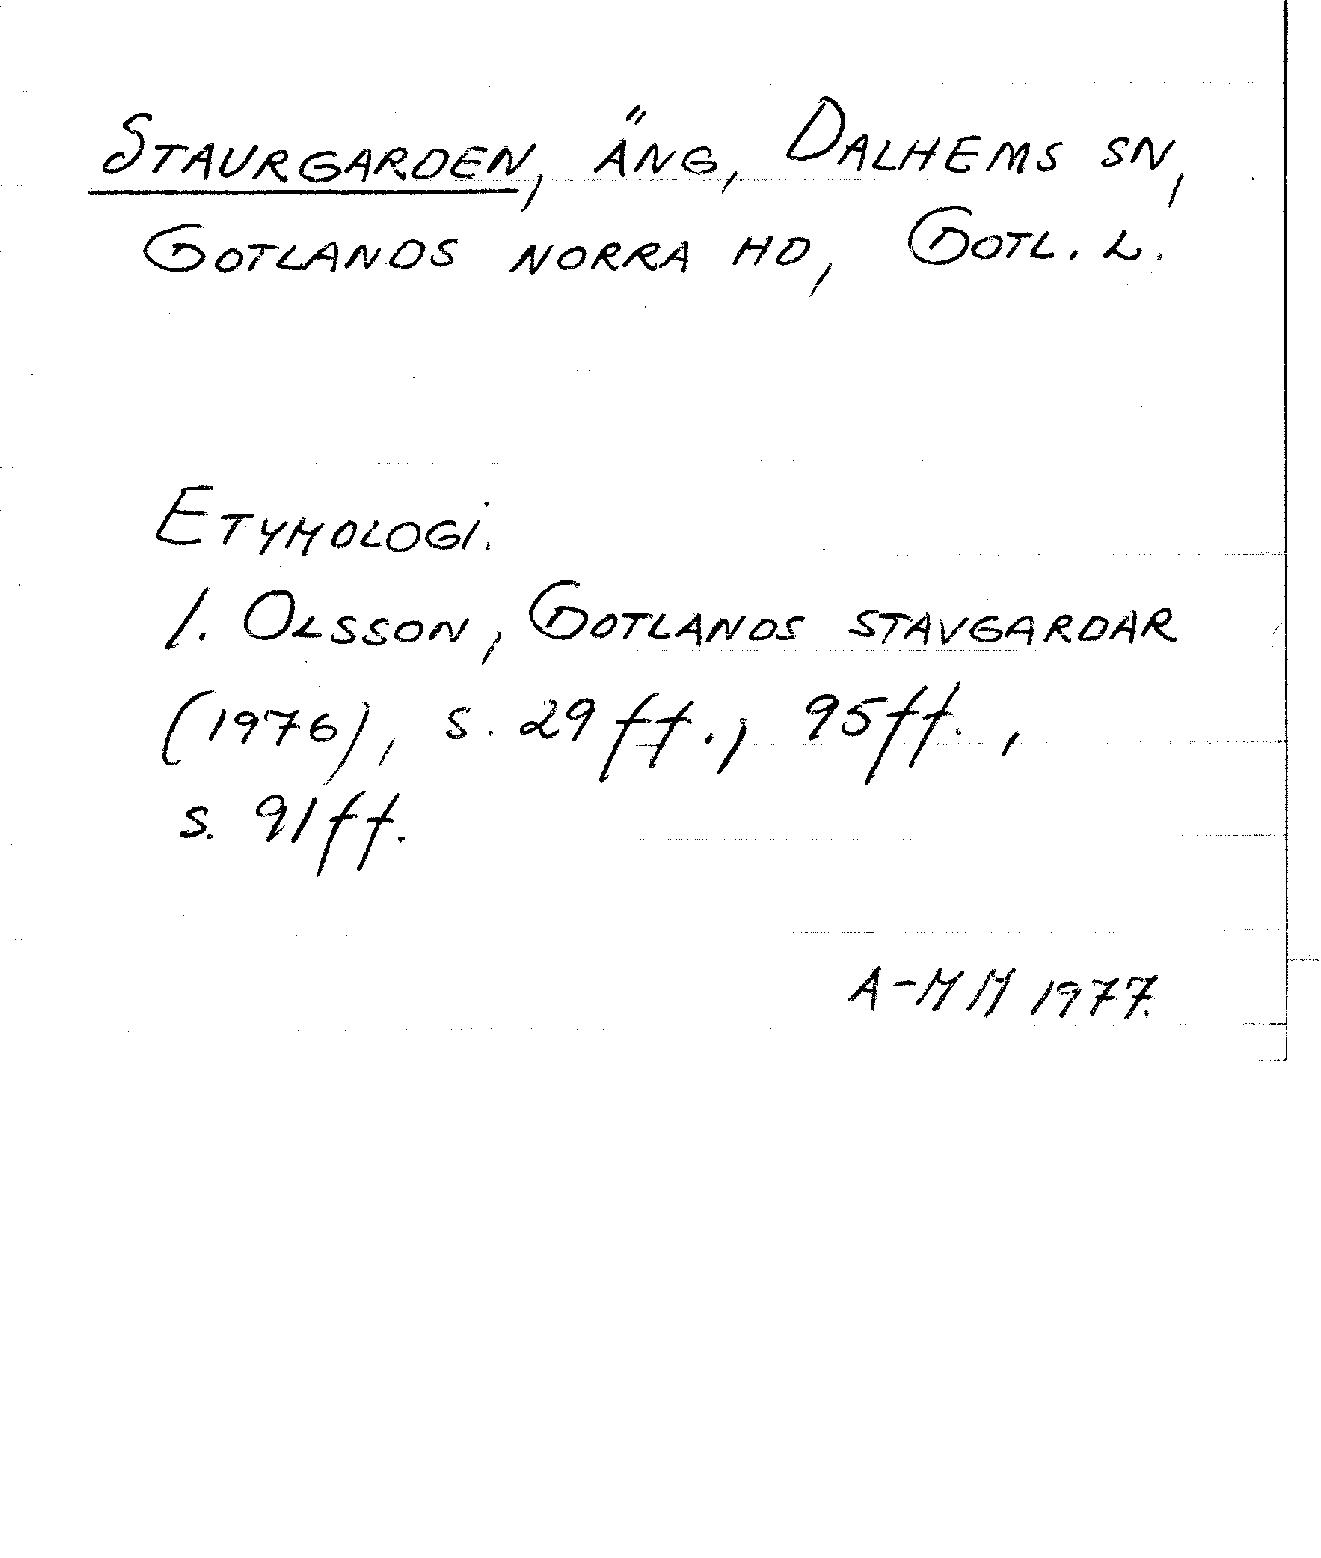 STAURGARDEN, ÄNG, DALHEMS SN,
GOTLANDS NORRA HD, GOTL. L.
ETYMOLOGI.
I. OLSSON, GOTLANDS STAVGARDAR
(1976), s. 29 ff., 95 ff.,
s. 91 ff.
A-MM 1977.